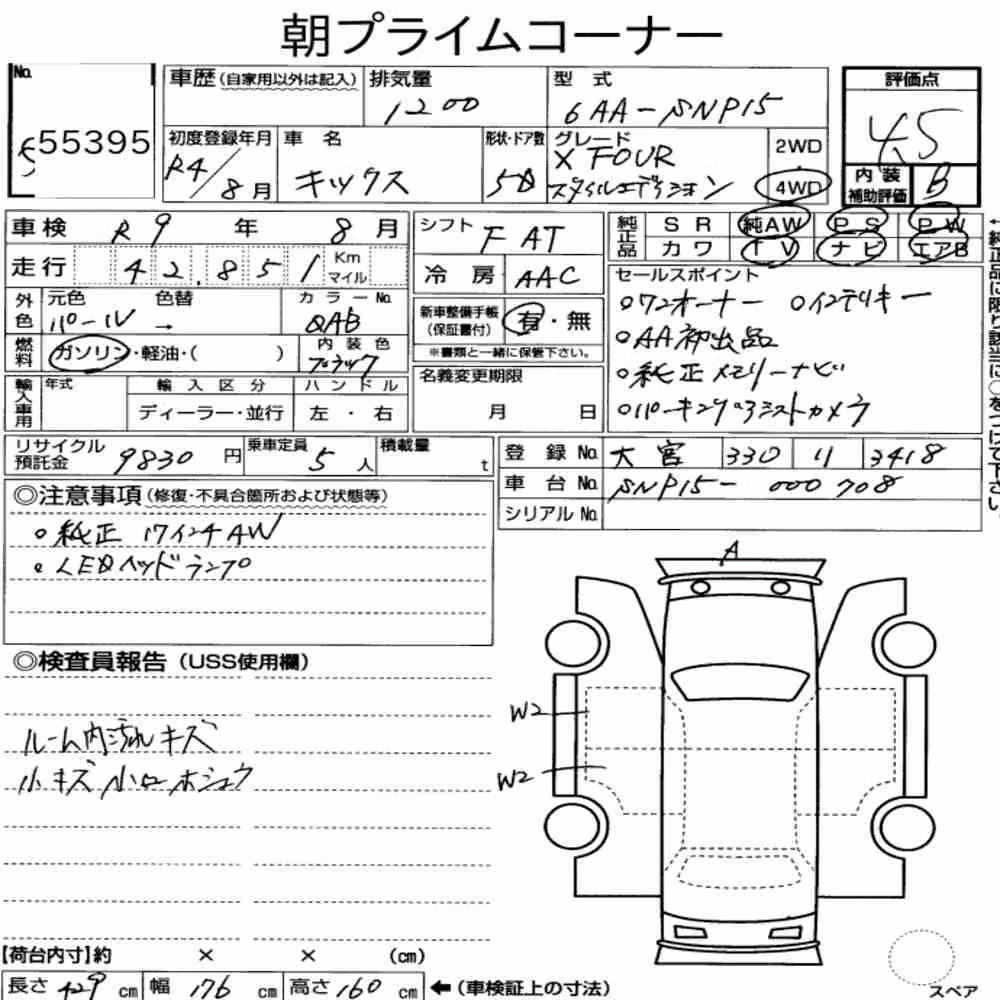 朝プライムコーナー
No. 55395
車歴(自家用以外は記入) 排気量 1200 型式 6AA-SNP15
評価点 4.5
初度登録年月 R4/8月 車名 キックス 形状・ドア数 5D グレード X FOUR スタイルエディション 2WD 4WD
内装補助評価 B
車検 R9年 8月
走行 42,851 Km マイル
外色 元色 パール 色替 → カラーNo. QAB
燃料 ガソリン・軽油・( ) 内装色 ブラック
輸入車用 年式 輸入区分 ディーラー・並行 ハンドル 左・右
シフト F AT
冷房 AAC
新車整備手帳(保証書付) 有・無
※書類と一緒に保管下さい。
名義変更期限 月 日
純正品 SR 純AW PS PW
カワ TV ナビ エアB
←純正品に限り該当に○をつけて下さい。
セールスポイント
○ワンオーナー ○インテリキー
○AA初出品
○純正メモリーナビ
○パーキングアシストカメラ
リサイクル預託金 9830円 乗車定員 5人 積載量 t
登録No. 大宮 330 11 3418
車台No. SNP15-000708
シリアルNo.
◎注意事項(修復・不具合箇所および状態等)
○純正 17インチAW
○LEDヘッドランプ
◎検査員報告(USS使用欄)
ルーム内汚れキズ
小キズ 小ローホシュウ
A
W2
W2
【荷台内寸】約 × × (cm)
長さ 429 cm 幅 176 cm 高さ 160 cm ←(車検証上の寸法)
スペア